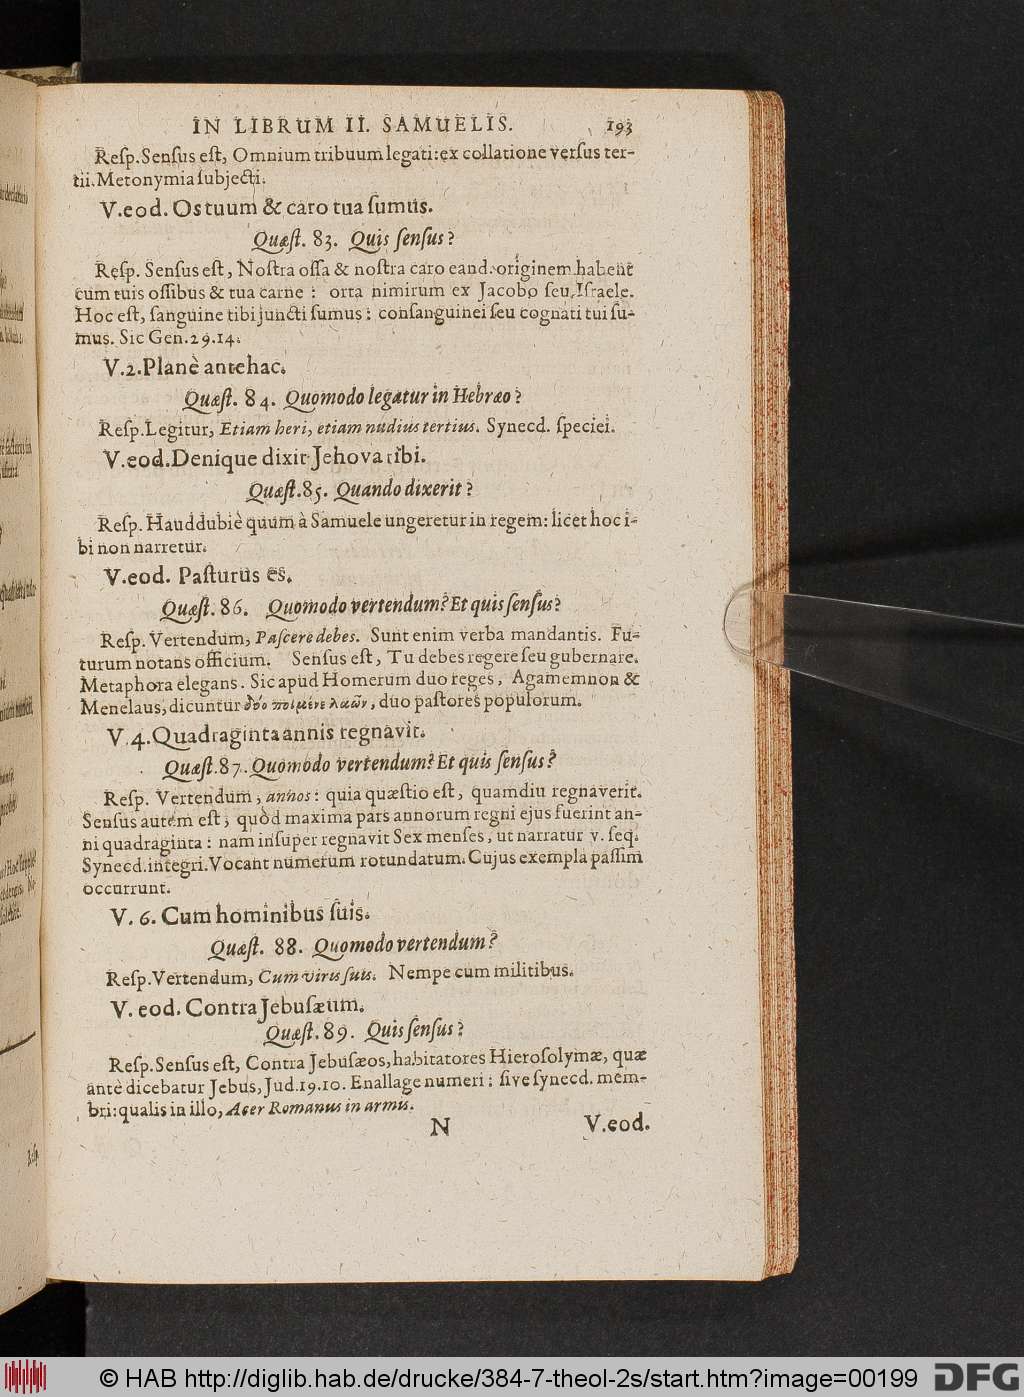 IN LIBRUM II. SAMUELIS. 193
Reſp. Senſus eſt, Omnium tribuum legati: ex collatione verſus ter-
tii. Metonymia ſubjecti.
V. eod. Os tuum & caro tua ſumus.
Quæſt. 83. Quis ſenſus?
Reſp. Senſus eſt, Noſtra oſſa & noſtra caro eand. originem habent
cum tuis oſſibus & tua carne: orta nimirum ex Jacobo ſeu Iſraele.
Hoc eſt, ſanguine tibi juncti ſumus: conſanguinei ſeu cognati tui ſu-
mus. Sic Gen. 29. 14.
V. 2. Planè antehac.
Quæſt. 84. Quomodo legatur in Hebræo?
Reſp. Legitur, Etiam heri, etiam nudius tertius. Synecd. ſpeciei.
V. eod. Denique dixit Jehova tibi.
Quæſt. 85. Quando dixerit?
Reſp. Hauddubiè quum à Samuele ungeretur in regem: licet hoc i-
bi non narretur.
V. eod. Paſturus es.
Quæſt. 86. Quomodo vertendum? Et quis ſenſus?
Reſp. Vertendum, Paſcere debes. Sunt enim verba mandantis. Fu-
turum notans officium. Senſus eſt, Tu debes regere ſeu gubernare.
Metaphora elegans. Sic apud Homerum duo reges, Agamemnon &
Menelaus, dicuntur δύο ποιμένε λαῶν, duo paſtores populorum.
V. 4. Quadraginta annis regnavit.
Quæſt. 87. Quomodo vertendum? Et quis ſenſus?
Reſp. Vertendum, annos: quia quæſtio eſt, quamdiu regnaverit.
Senſus autem eſt, quòd maxima pars annorum regni ejus fuerint an-
ni quadraginta: nam inſuper regnavit Sex menſes, ut narratur v. ſeq.
Synecd. integri. Vocant numerum rotundatum. Cujus exempla paſſim
occurrunt.
V. 6. Cum hominibus ſuis.
Quæſt. 88. Quomodo vertendum?
Reſp. Vertendum, Cum viris ſuis. Nempe cum militibus.
V. eod. Contra Jebuſæum.
Quæſt. 89. Quis ſenſus?
Reſp. Senſus eſt, Contra Jebuſæos, habitatores Hieroſolymæ, quæ
antè dicebatur Jebus, Jud. 19. 10. Enallage numeri: ſive ſynecd. mem-
bri: qualis in illo, Acer Romanus in armis.
N V. eod.
© HAB http://diglib.hab.de/drucke/384-7-theol-2s/start.htm?image=00199
DFG